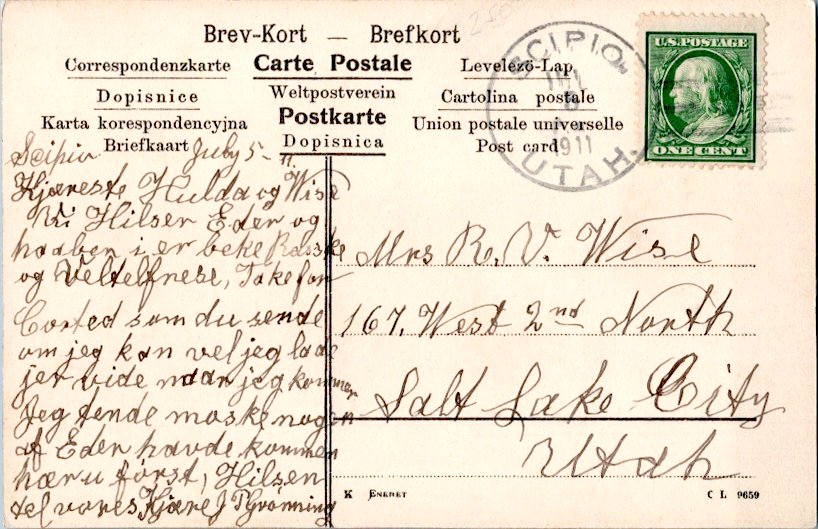 Brev-Kort — Brefkort
Correspondenzkarte Carte Postale Levelező-Lap
Dopisnice Weltpostverein Cartolina postale
Karta korespondencyjna Postkarte Union postale universelle
Briefkaart Dopisnica Post card
SCIPIO,
1911
UTAH.
U.S. POSTAGE
ONE CENT
Scipio July 5 - 11.
Kjæreste Hulda og Wise
Vi Hilser Eder og
haaber i er beke Raske
og Veltelfrese, Take for
Corted som du sende
om jeg kan vel jeg lade
jer vide naar jeg kommer
Jeg tende maske nogen
af Eder havde kommen
hær u først, Hilsen
tel vores Kjære J P Grønning
Mrs R. V. Wise
167. West 2nd North
Salt Lake City
Utah
K ENERET C L 9659